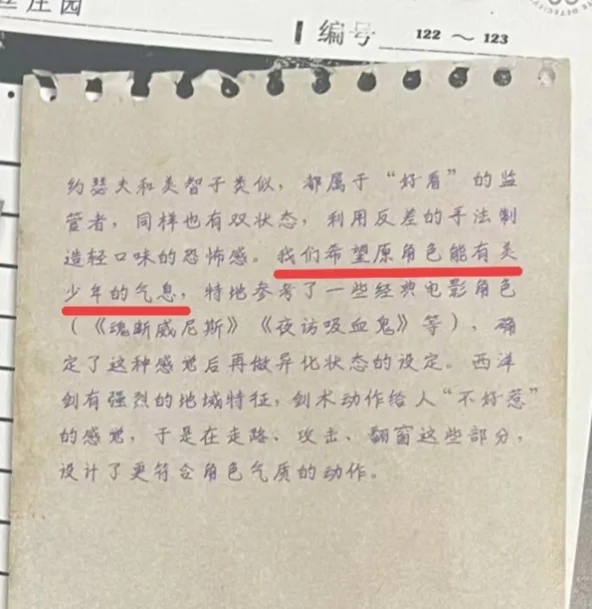 庄园
编号 122 ～ 123
约瑟夫和美智子类似，都属于“好看”的监
管者，同样也有双状态，利用反差的手法制
造轻口味的恐怖感。我们希望原角色能有美
少年的气息，特地参考了一些经典电影角色
（《魂断威尼斯》《夜访吸血鬼》等），确
定了这种感觉后再做异化状态的设定。西洋
剑有强烈的地域特征，剑术动作给人“不好惹”
的感觉，于是在走路、攻击、翻窗这些部分，
设计了更符合角色气质的动作。